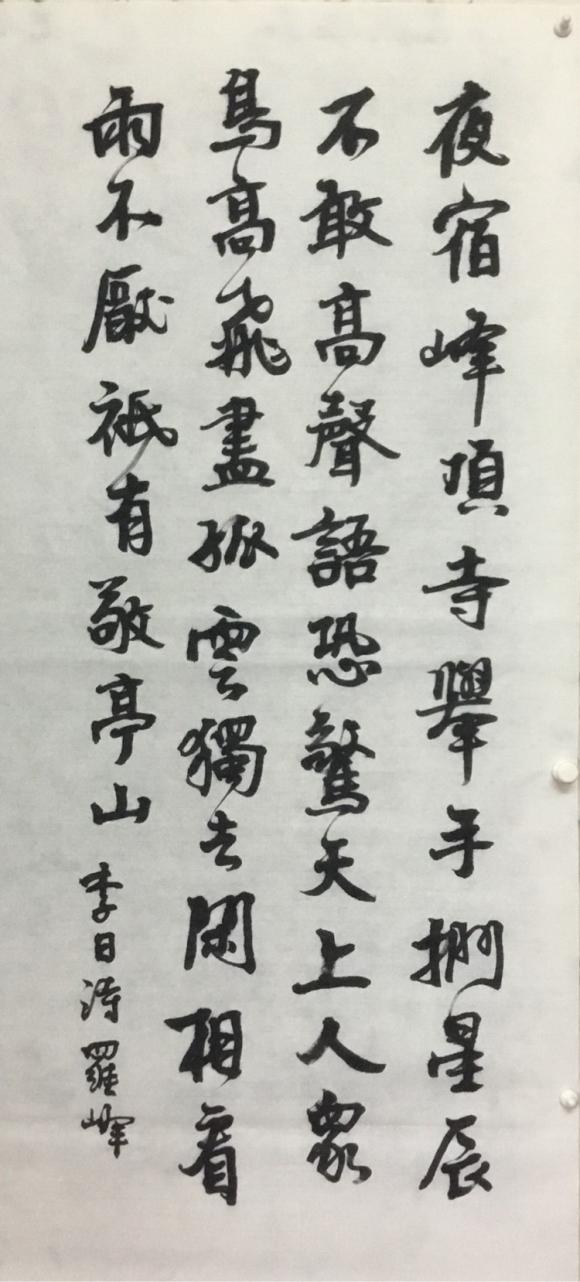 夜宿峰頂寺舉手捫星辰
不敢高聲語恐驚天上人眾
鳥高飛盡孤雲獨去閑相看
兩不厭祇有敬亭山
李白詩羅峰